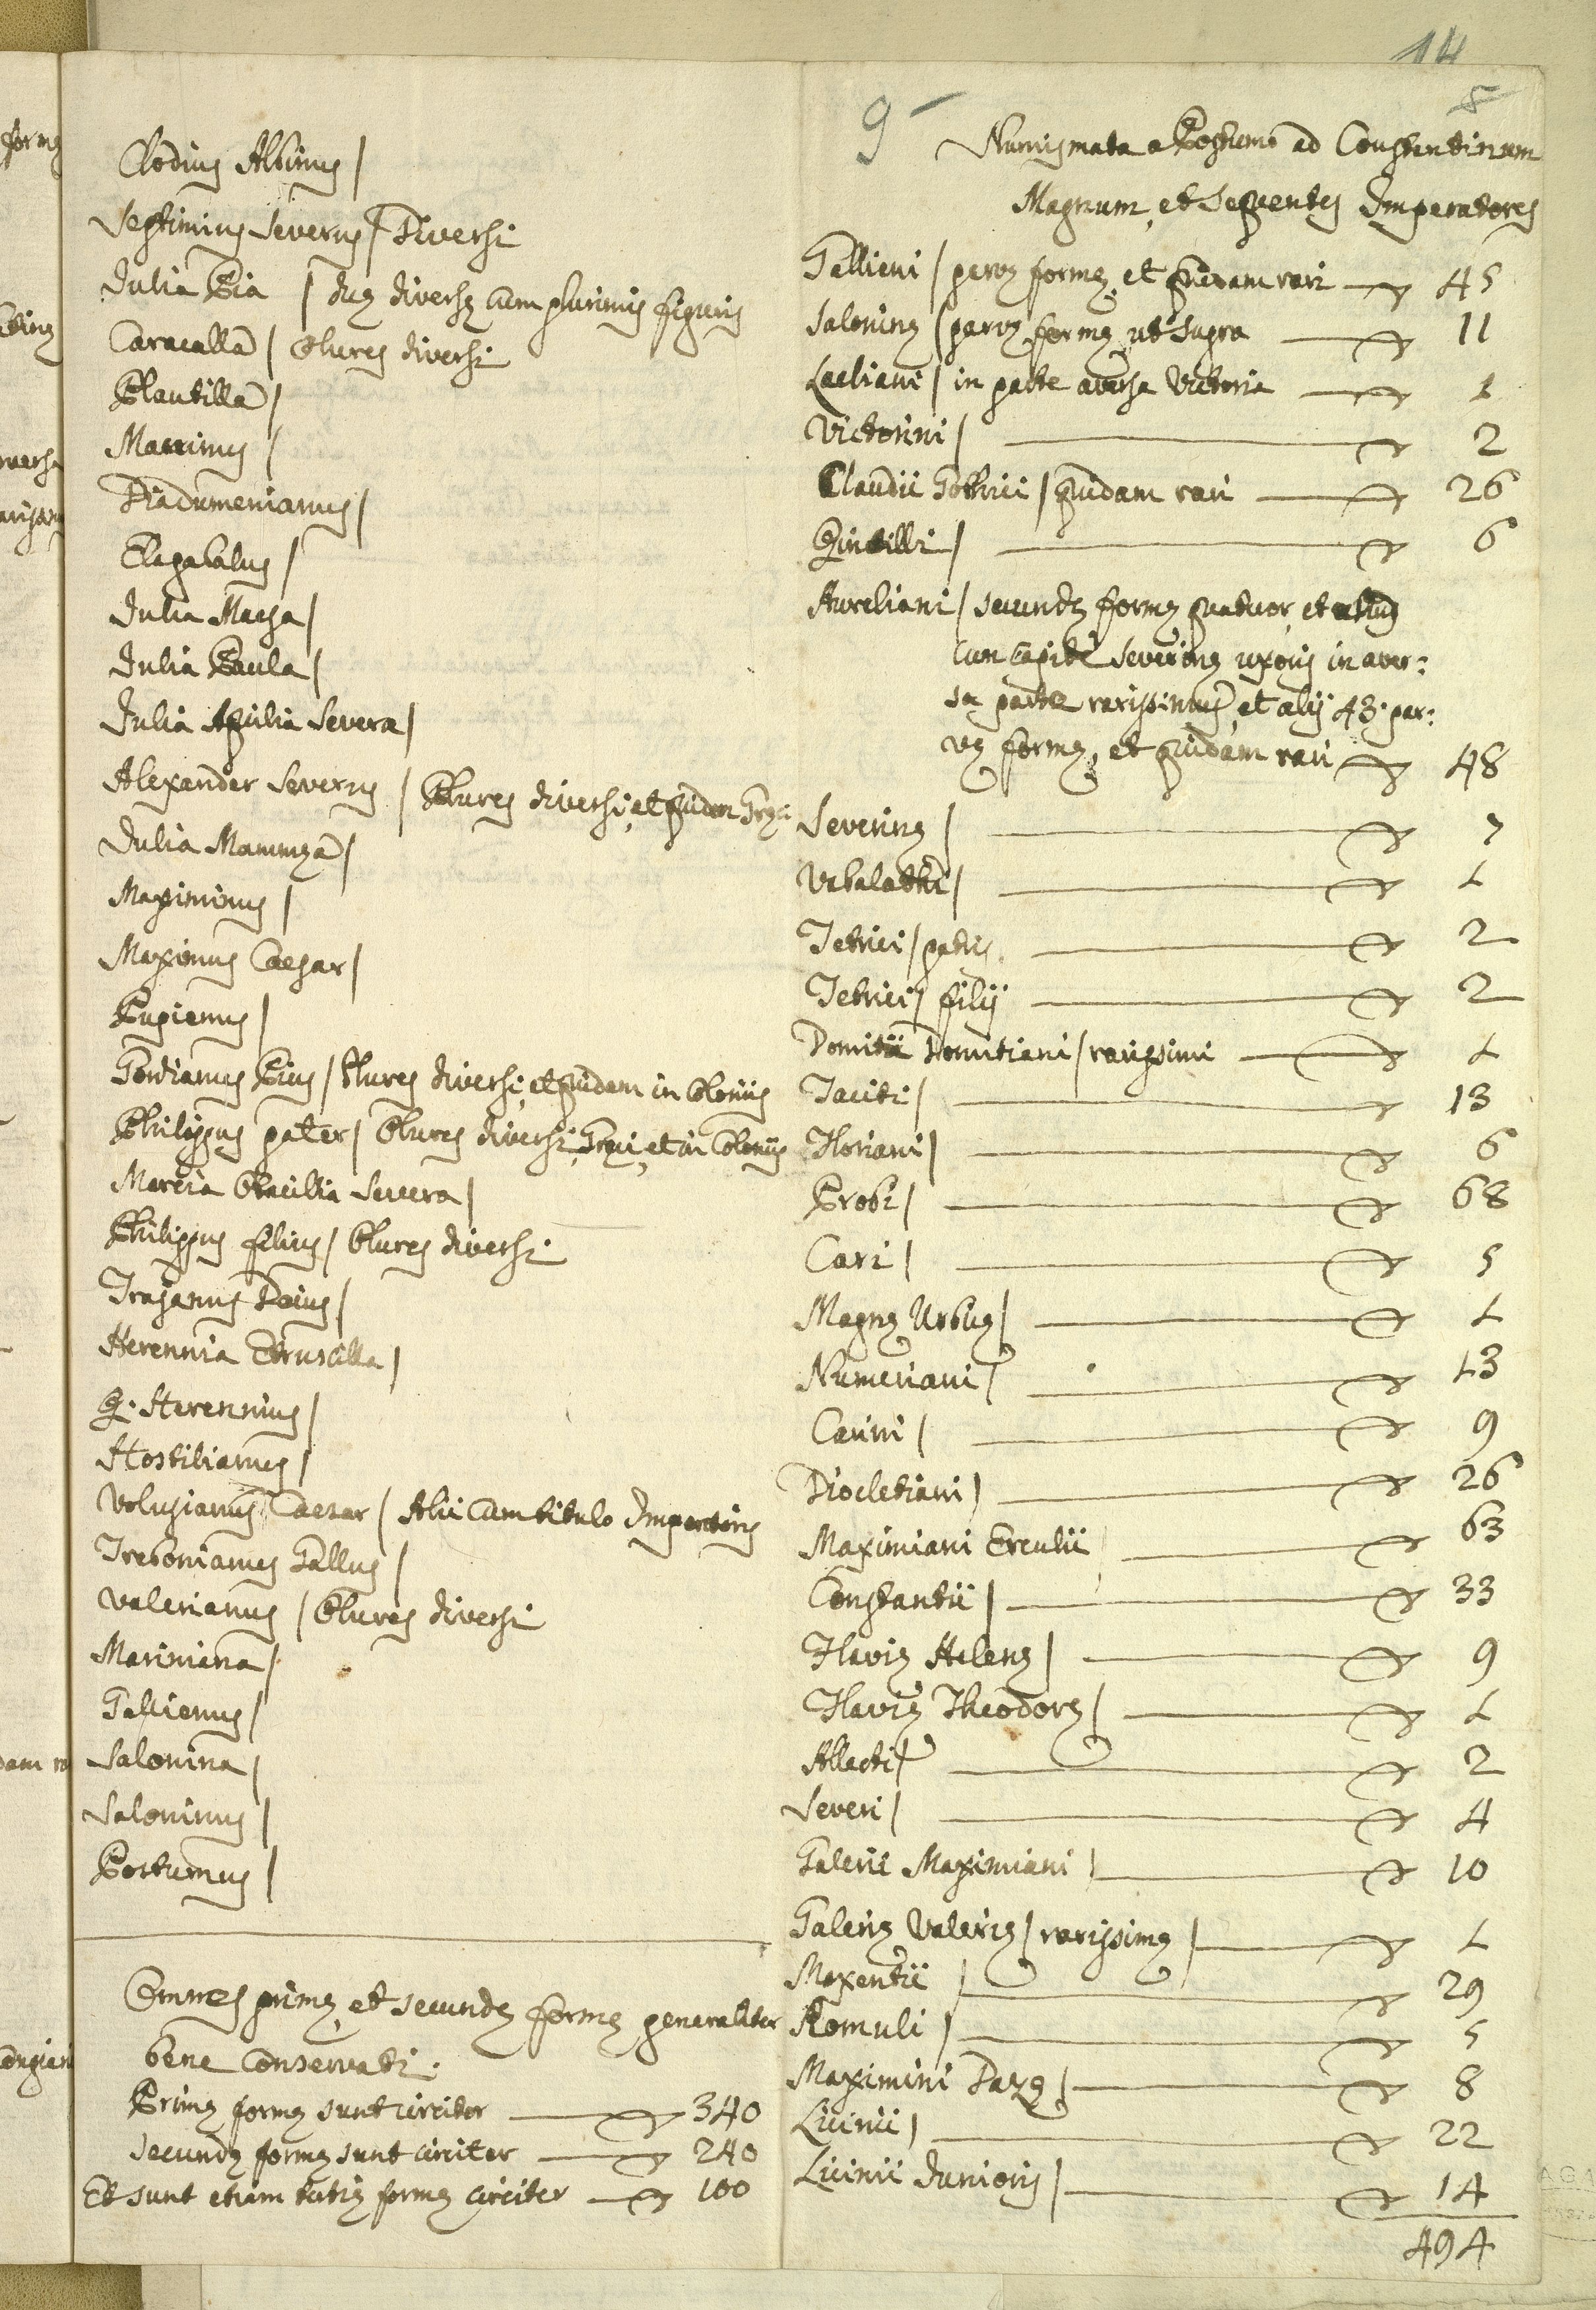 Clodius Albinus /
Septimius Severus / Diversi
Julia Pia / duę diversę cum plurimis figuris
Caracalla / Plures diversi
Plautilla /
Macrinus /
Diadumenianus /
Elagabalus /
Julia Maesa /
Julia Paula /
Julia Aquilia Severa /
Alexander Severus / Plures diversi, et quidam Gręci
Julia Mammęa /
Maximinus /
Maximus Caesar /
Pupienus /
Gordianus Pius / Plures diversi, et quidam in Coloniis
Philippus pater / Plures diversi, Gręci, et in Coloniis
Marcia Otacilia Severa /
Philippus filius / Plures diversi
Trajanus Decius /
Herennia Etruscilla /
Q. Herennius /
Hostilianus /
Volusianus Caesar / Alii cum titulo Imperatoris
Trebonianus Gallus /
Valerianus / Plures diversi
Mariniana /
Gallienus /
Salonina /
Saloninus /
Postumus /
Omnes primę, et secundę formę generaliter
bene conservati.
Primę formę sunt circiter 340
secundę formę sunt circiter 240
Et sunt etiam tertię formę circiter 100
14
9
8
Numismata a Postumo ad Constantinum
Magnum, et Sequentes Imperatores
Gallieni / parvę formę, et quidam rari 45
Saloninę / parvę formę ut supra 11
Laeliani / in parte aversa Victoria 1
Victorini / 2
Claudii Gothici / quidam rari 26
Quintilli / 6
Aureliani / secundę formę quatuor, et alius
cum capite Severinę uxoris in aver:
sa parte rarissimus, et alij 43. par:
vę formę, et quidam rari 48
Severinę / 7
Vabalathi / 1
Tetrici / patris 2
Tetrici / filij 2
Domitii Domitiani / rarissimi 1
Taciti / 13
Floriani / 6
Probi / 68
Cari / 5
Magnę Urbicę / 1
Numeriani / 13
Carini / 9
Diocletiani / 26
Maximiani Erculii 63
Constantii / 33
Flavię Helenę / 9
Flavię Theodorę / 1
Allecti / 2
Severi / 4
Galerii Maximiani / 10
Galerię Valerię / rarissimę / 1
Maxentii / 29
Romuli / 5
Maximini Dazę / 8
Licinii / 22
Licinii Junioris / 14
494